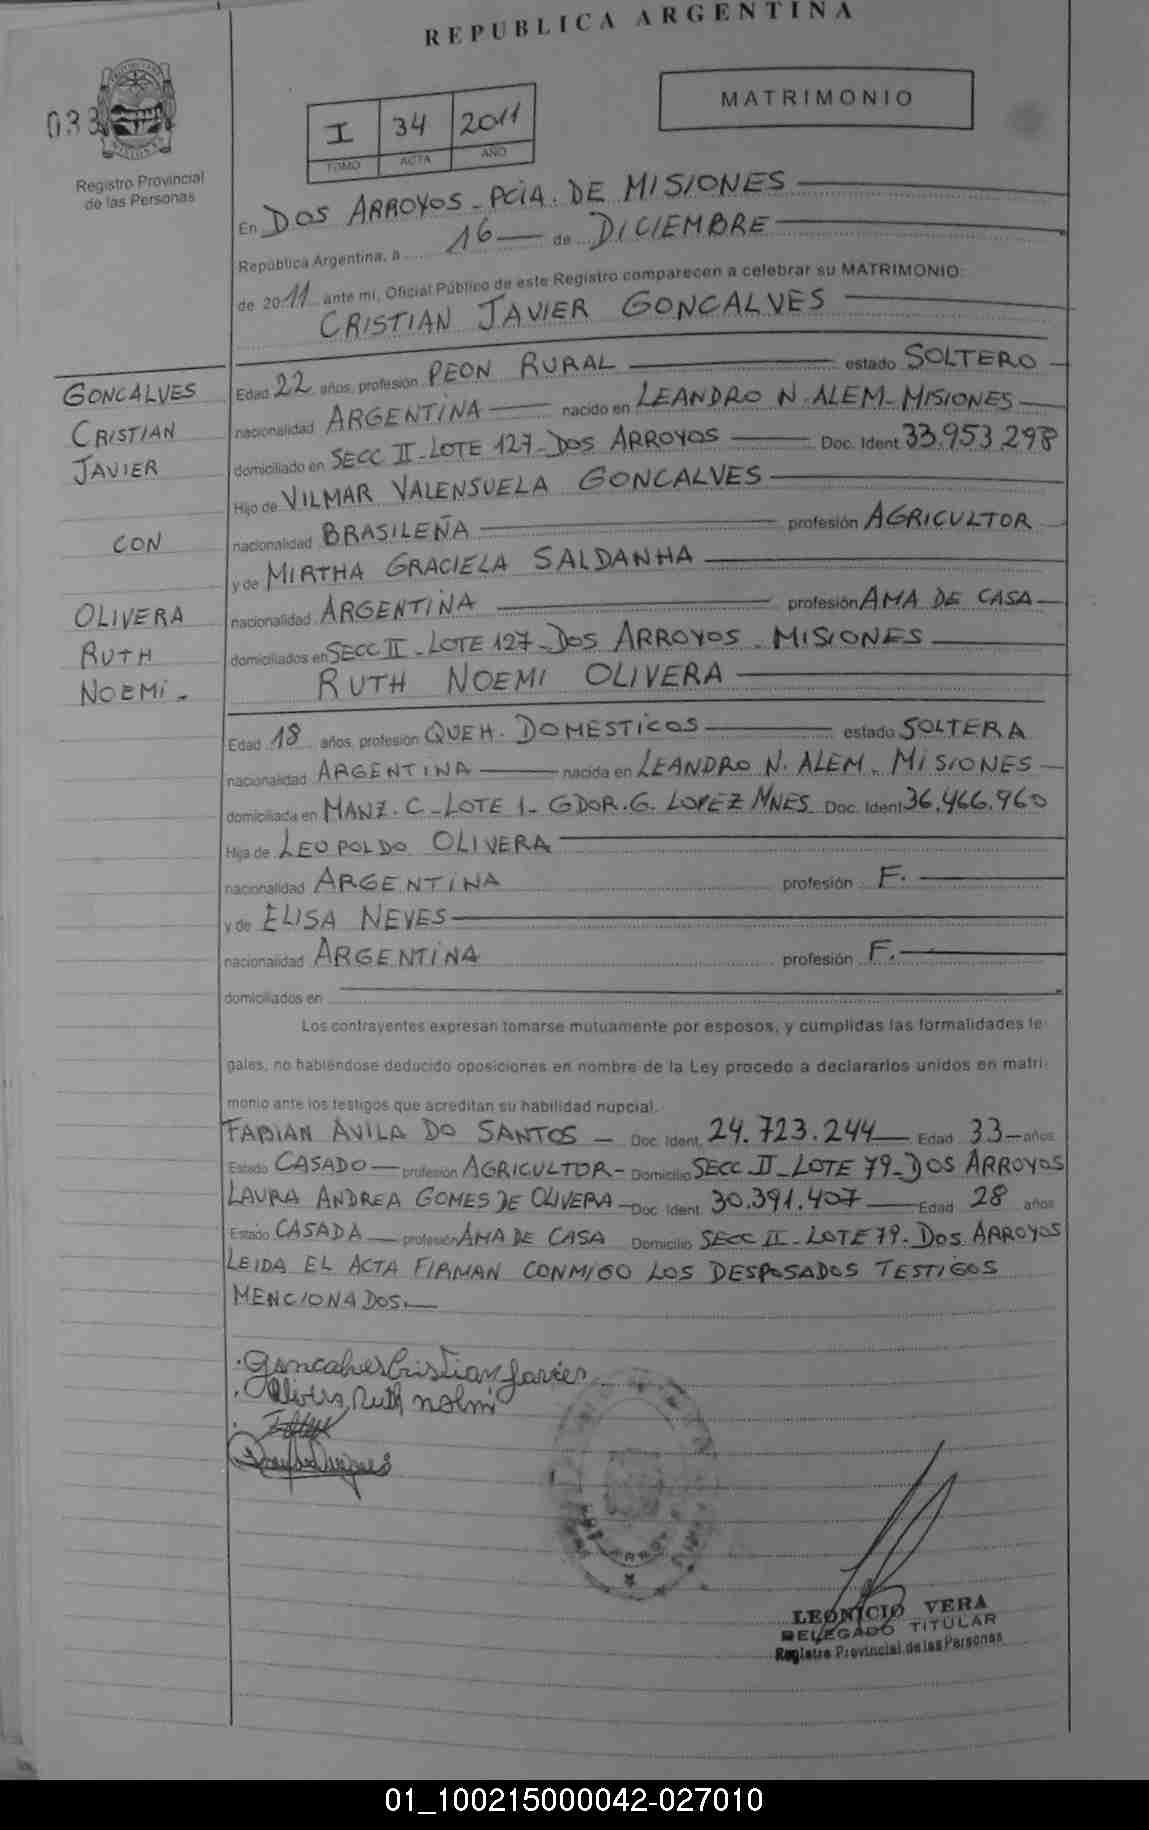 REPUBLICA ARGENTINA
MATRIMONIO
033
I 34 2011
TOMO ACTA AÑO
Registro Provincial
de las Personas
En DOS ARROYOS - PCIA. DE MISIONES
República Argentina, a 16 de DICIEMBRE
de 2011 ante mi, Oficial Público de este Registro comparecen a celebrar su MATRIMONIO:
CRISTIAN JAVIER GONCALVES
GONCALVES
CRISTIAN
JAVIER
CON
OLIVERA
RUTH
NOEMI -
Edad 22 años, profesión PEON RURAL estado SOLTERO
nacionalidad ARGENTINA nacido en LEANDRO N. ALEM - MISIONES
domiciliado en SECC II - LOTE 127 - DOS ARROYOS Doc. Ident 33.953.298
Hijo de VILMAR VALENSUELA GONCALVES
nacionalidad BRASILEÑA profesión AGRICULTOR
y de MIRTHA GRACIELA SALDANHA
nacionalidad ARGENTINA profesión AMA DE CASA
domiciliados en SECC II - LOTE 127 - DOS ARROYOS - MISIONES
RUTH NOEMI OLIVERA
Edad 18 años, profesión QUEH. DOMESTICOS estado SOLTERA
nacionalidad ARGENTINA nacida en LEANDRO N. ALEM - MISIONES
domiciliada en MANZ. C - LOTE 1 - GDOR. G. LOPEZ MNES Doc. Ident 36.466.960
Hija de LEOPOLDO OLIVERA
nacionalidad ARGENTINA profesión F.
y de ELISA NEVES
nacionalidad ARGENTINA profesión F.
domiciliados en
Los contrayentes expresan tomarse mutuamente por esposos, y cumplidas las formalidades le-
gales, no habiéndose deducido oposiciones en nombre de la Ley procedo a declararlos unidos en matri-
monio ante los testigos que acreditan su habilidad nupcial.
FABIAN AVILA DO SANTOS - Doc. Ident. 24.723.244 Edad 33 años
Estado CASADO profesión AGRICULTOR - Domicilio SECC II - LOTE 79 - DOS ARROYOS
LAURA ANDREA GOMES DE OLIVERA - Doc. Ident. 30.391.407 Edad 28 años
Estado CASADA profesión AMA DE CASA Domicilio SECC II - LOTE 79 - DOS ARROYOS
LEIDA EL ACTA FIRMAN CONMIGO LOS DESPOSADOS TESTIGOS
MENCIONADOS.
Goncalves Cristian Javier
Olivera Ruth noemi
LEONICIO VERA
DELEGADO TITULAR
Registro Provincial de las Personas
01_100215000042-027010